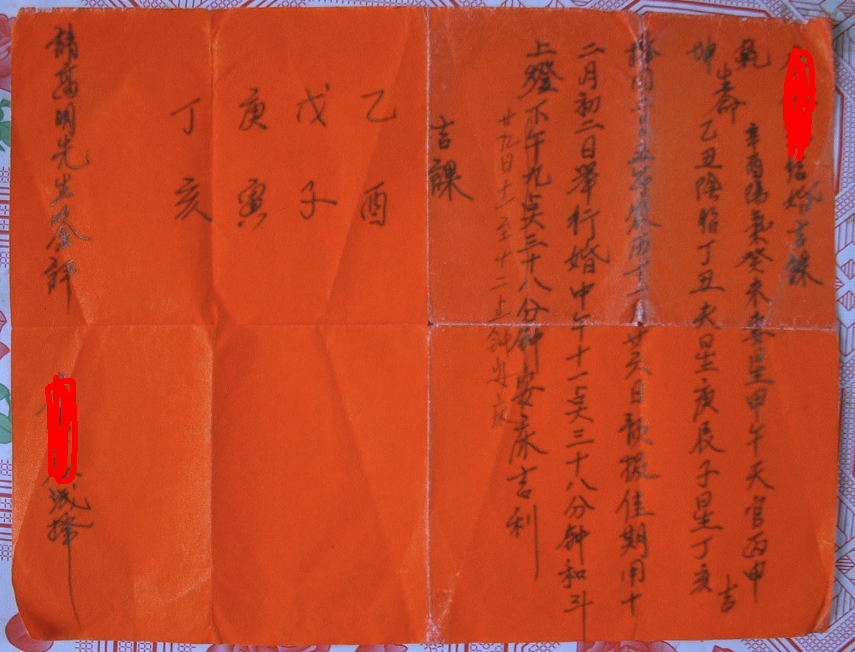 结婚吉课
乾 辛酉陽氣癸未妻星甲午天官丙申
生命 吉
坤 乙丑陰胎丁丑夫星庚辰子星丁亥
廿六日敬撰佳期用十
二月初二日举行婚中午十一点三十八分钟和斗
上燈下午九点三十八分钟安床吉利
廿九日十一至十二点钟安床
吉課
乙酉
戊子
庚寅
丁亥
請高明先生 評
敬擇